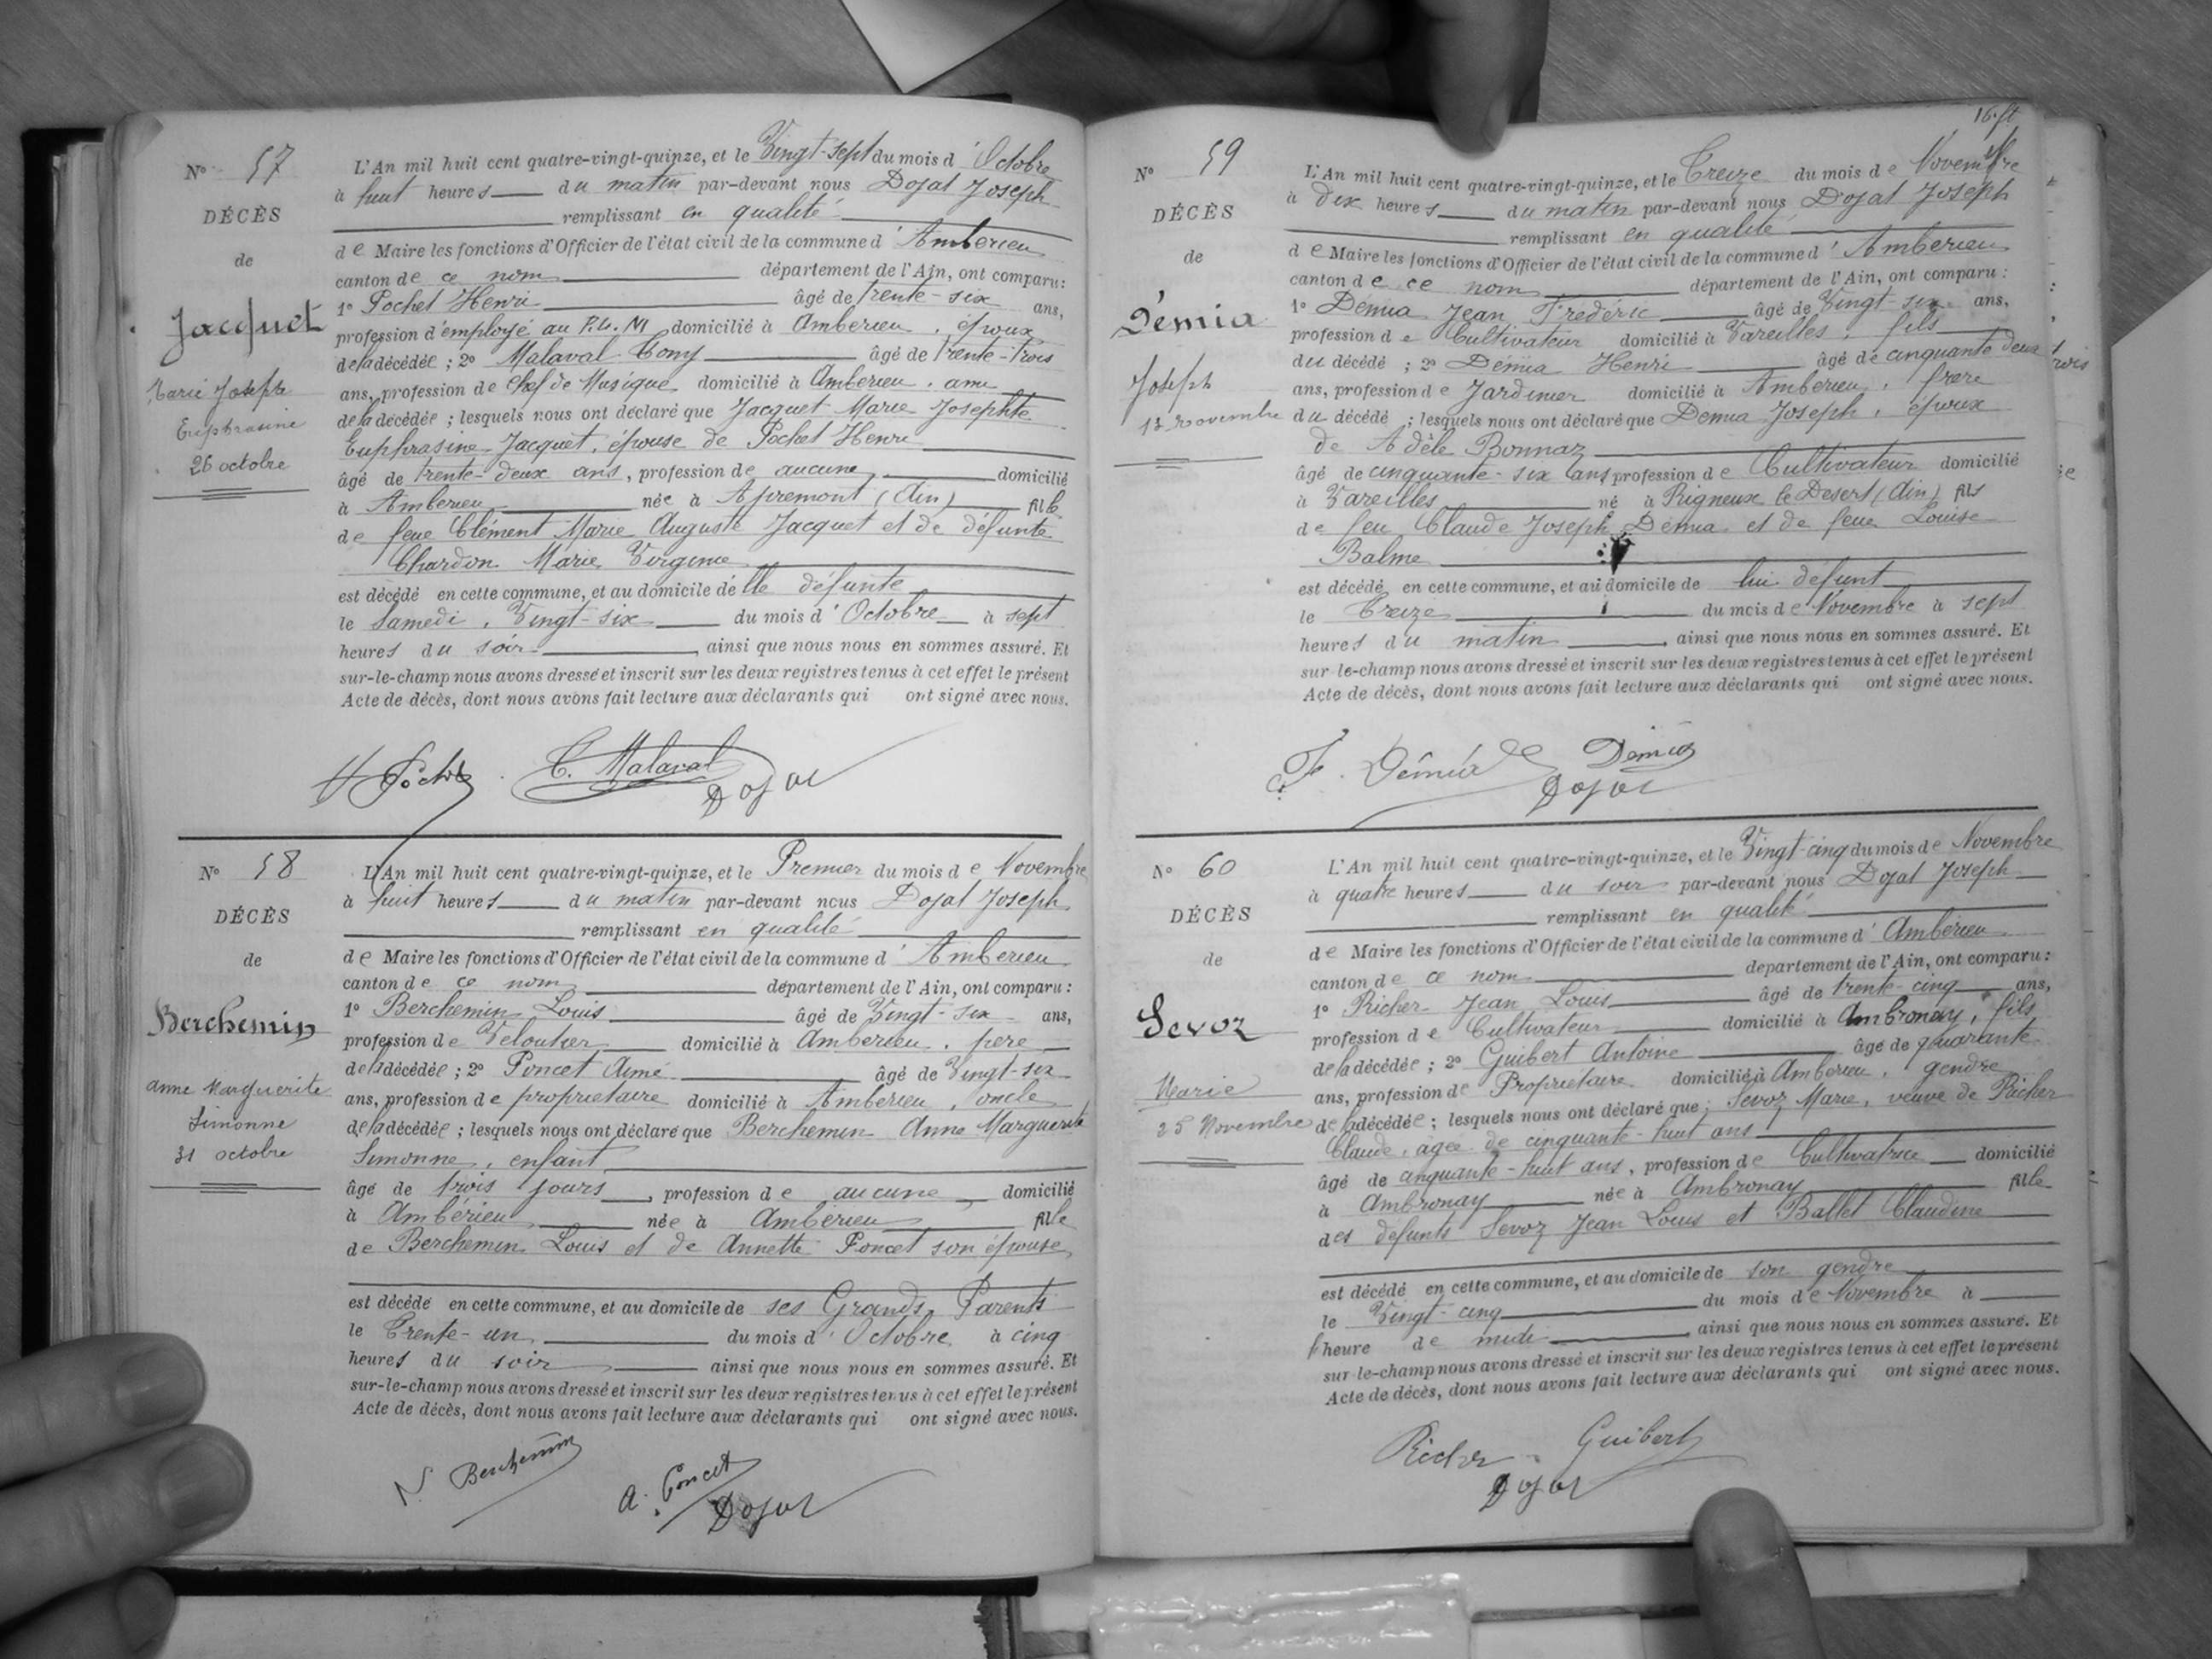 N° 57
DÉCÈS
de
Jacquet
Marie Josephte
Euphrasine
26 octobre
L'An mil huit cent quatre-vingt-quinze, et le Vingt-sept du mois d'Octobre
à huit heures du matin par-devant nous Dojat Joseph
remplissant en qualité
de Maire les fonctions d'Officier de l'état civil de la commune d'Amberieu
canton de ce nom département de l'Ain, ont comparu:
1° Pochet Henri âgé de trente-six ans,
profession d'employé au P.L.M domicilié à Amberieu, époux
de la décédée; 2° Malaval Tony âgé de trente-trois
ans, profession de Chef de Musique domicilié à Amberieu, ami
de la décédée; lesquels nous ont déclaré que Jacquet Marie Josephte
Euphrasine Jacquet, épouse de Pochet Henri
âgé de trente-deux ans, profession de aucune domicilié
à Amberieu née à Apremont (Ain) fille
de feue Clément Marie Auguste Jacquet et de défunte
Chardon Marie Virginie
est décédé en cette commune, et au domicile de lle défunte
le Samedi, Vingt-six du mois d'Octobre à sept
heures du soir, ainsi que nous nous en sommes assuré. Et
sur-le-champ nous avons dressé et inscrit sur les deux registres tenus à cet effet le présent
Acte de décès, dont nous avons fait lecture aux déclarants qui ont signé avec nous.
H Pochet C. Malaval
Dojat
N° 58
DÉCÈS
de
Berchemin
Anne Marguerite
Simonne
31 octobre
L'An mil huit cent quatre-vingt-quinze, et le Premier du mois de Novembre
à huit heures du matin par-devant nous Dojat Joseph
remplissant en qualité
de Maire les fonctions d'Officier de l'état civil de la commune d'Amberieu
canton de ce nom département de l'Ain, ont comparu:
1° Berchemin Louis âgé de Vingt-six ans,
profession de Veloutier domicilié à Amberieu, père
de la décédée; 2° Poncet Aimé âgé de Vingt-six
ans, profession de propriétaire domicilié à Amberieu, oncle
de la décédée; lesquels nous ont déclaré que Berchemin Anne Marguerite
Simonne, enfant
âgé de trois jours, profession de aucune domicilié
à Ambérieu née à Amberieu fille
de Berchemin Louis et de Annette Poncet son épouse
est décédé en cette commune, et au domicile de ses Grands Parents
le Trente-un du mois d'Octobre à cinq
heures du soir ainsi que nous nous en sommes assuré. Et
sur-le-champ nous avons dressé et inscrit sur les deux registres tenus à cet effet le présent
Acte de décès, dont nous avons fait lecture aux déclarants qui ont signé avec nous.
Berchemin
A. Poncet
Dojat
16. ft
N° 59
DÉCÈS
de
Démia
Joseph
13 novembre
L'An mil huit cent quatre-vingt-quinze, et le Treize du mois de Novembre
à dix heures du matin par-devant nous Dojat Joseph
remplissant en qualité
de Maire les fonctions d'Officier de l'état civil de la commune d'Amberieu
canton de ce nom département de l'Ain, ont comparu:
1° Démia Jean Frédéric âgé de Vingt-six ans,
profession de Cultivateur domicilié à Vareilles, fils
du décédé; 2° Démia Henri âgé de cinquante deux
ans, profession de Jardinier domicilié à Amberieu, frère
du décédé; lesquels nous ont déclaré que Demia Joseph, époux
de Adèle Bonnaz
âgé de cinquante-six ans profession de Cultivateur domicilié
à Vareilles né à Rigneux le Desert (Ain) fils
de feu Claude Joseph Démia et de feue Louise
Balme
est décédé en cette commune, et au domicile de lui défunt
le Treize du mois de Novembre à sept
heures du matin, ainsi que nous nous en sommes assuré. Et
sur-le-champ nous avons dressé et inscrit sur les deux registres tenus à cet effet le présent
Acte de décès, dont nous avons fait lecture aux déclarants qui ont signé avec nous.
F. Démia Démia
Dojat
N° 60
DÉCÈS
de
Sevoz
Marie
25 Novembre
L'An mil huit cent quatre-vingt-quinze, et le Vingt-cinq du mois de Novembre
à quatre heures du soir par-devant nous Dojat Joseph
remplissant en qualité
de Maire les fonctions d'Officier de l'état civil de la commune d'Ambérieu
canton de ce nom département de l'Ain, ont comparu:
1° Richer Jean Louis âgé de trente-cinq ans,
profession de Cultivateur domicilié à Ambronay, fils
de la décédée; 2° Guibert Antoine âgé de quarante
ans, profession de Propriétaire domicilié à Amberieu, gendre
de la décédée; lesquels nous ont déclaré que; Sevoz Marie, veuve de Richer
Claude, âgée de cinquante-huit ans
âgé de cinquante-huit ans, profession de Cultivatrice domicilié
à Ambronay née à Ambronay fille
des défunts Sevoz Jean Louis et Ballet Claudine
est décédé en cette commune, et au domicile de son gendre
le Vingt-cinq du mois de Novembre à
heure de midi, ainsi que nous nous en sommes assuré. Et
sur-le-champ nous avons dressé et inscrit sur les deux registres tenus à cet effet le présent
Acte de décès, dont nous avons fait lecture aux déclarants qui ont signé avec nous.
Richer Guibert
Dojat